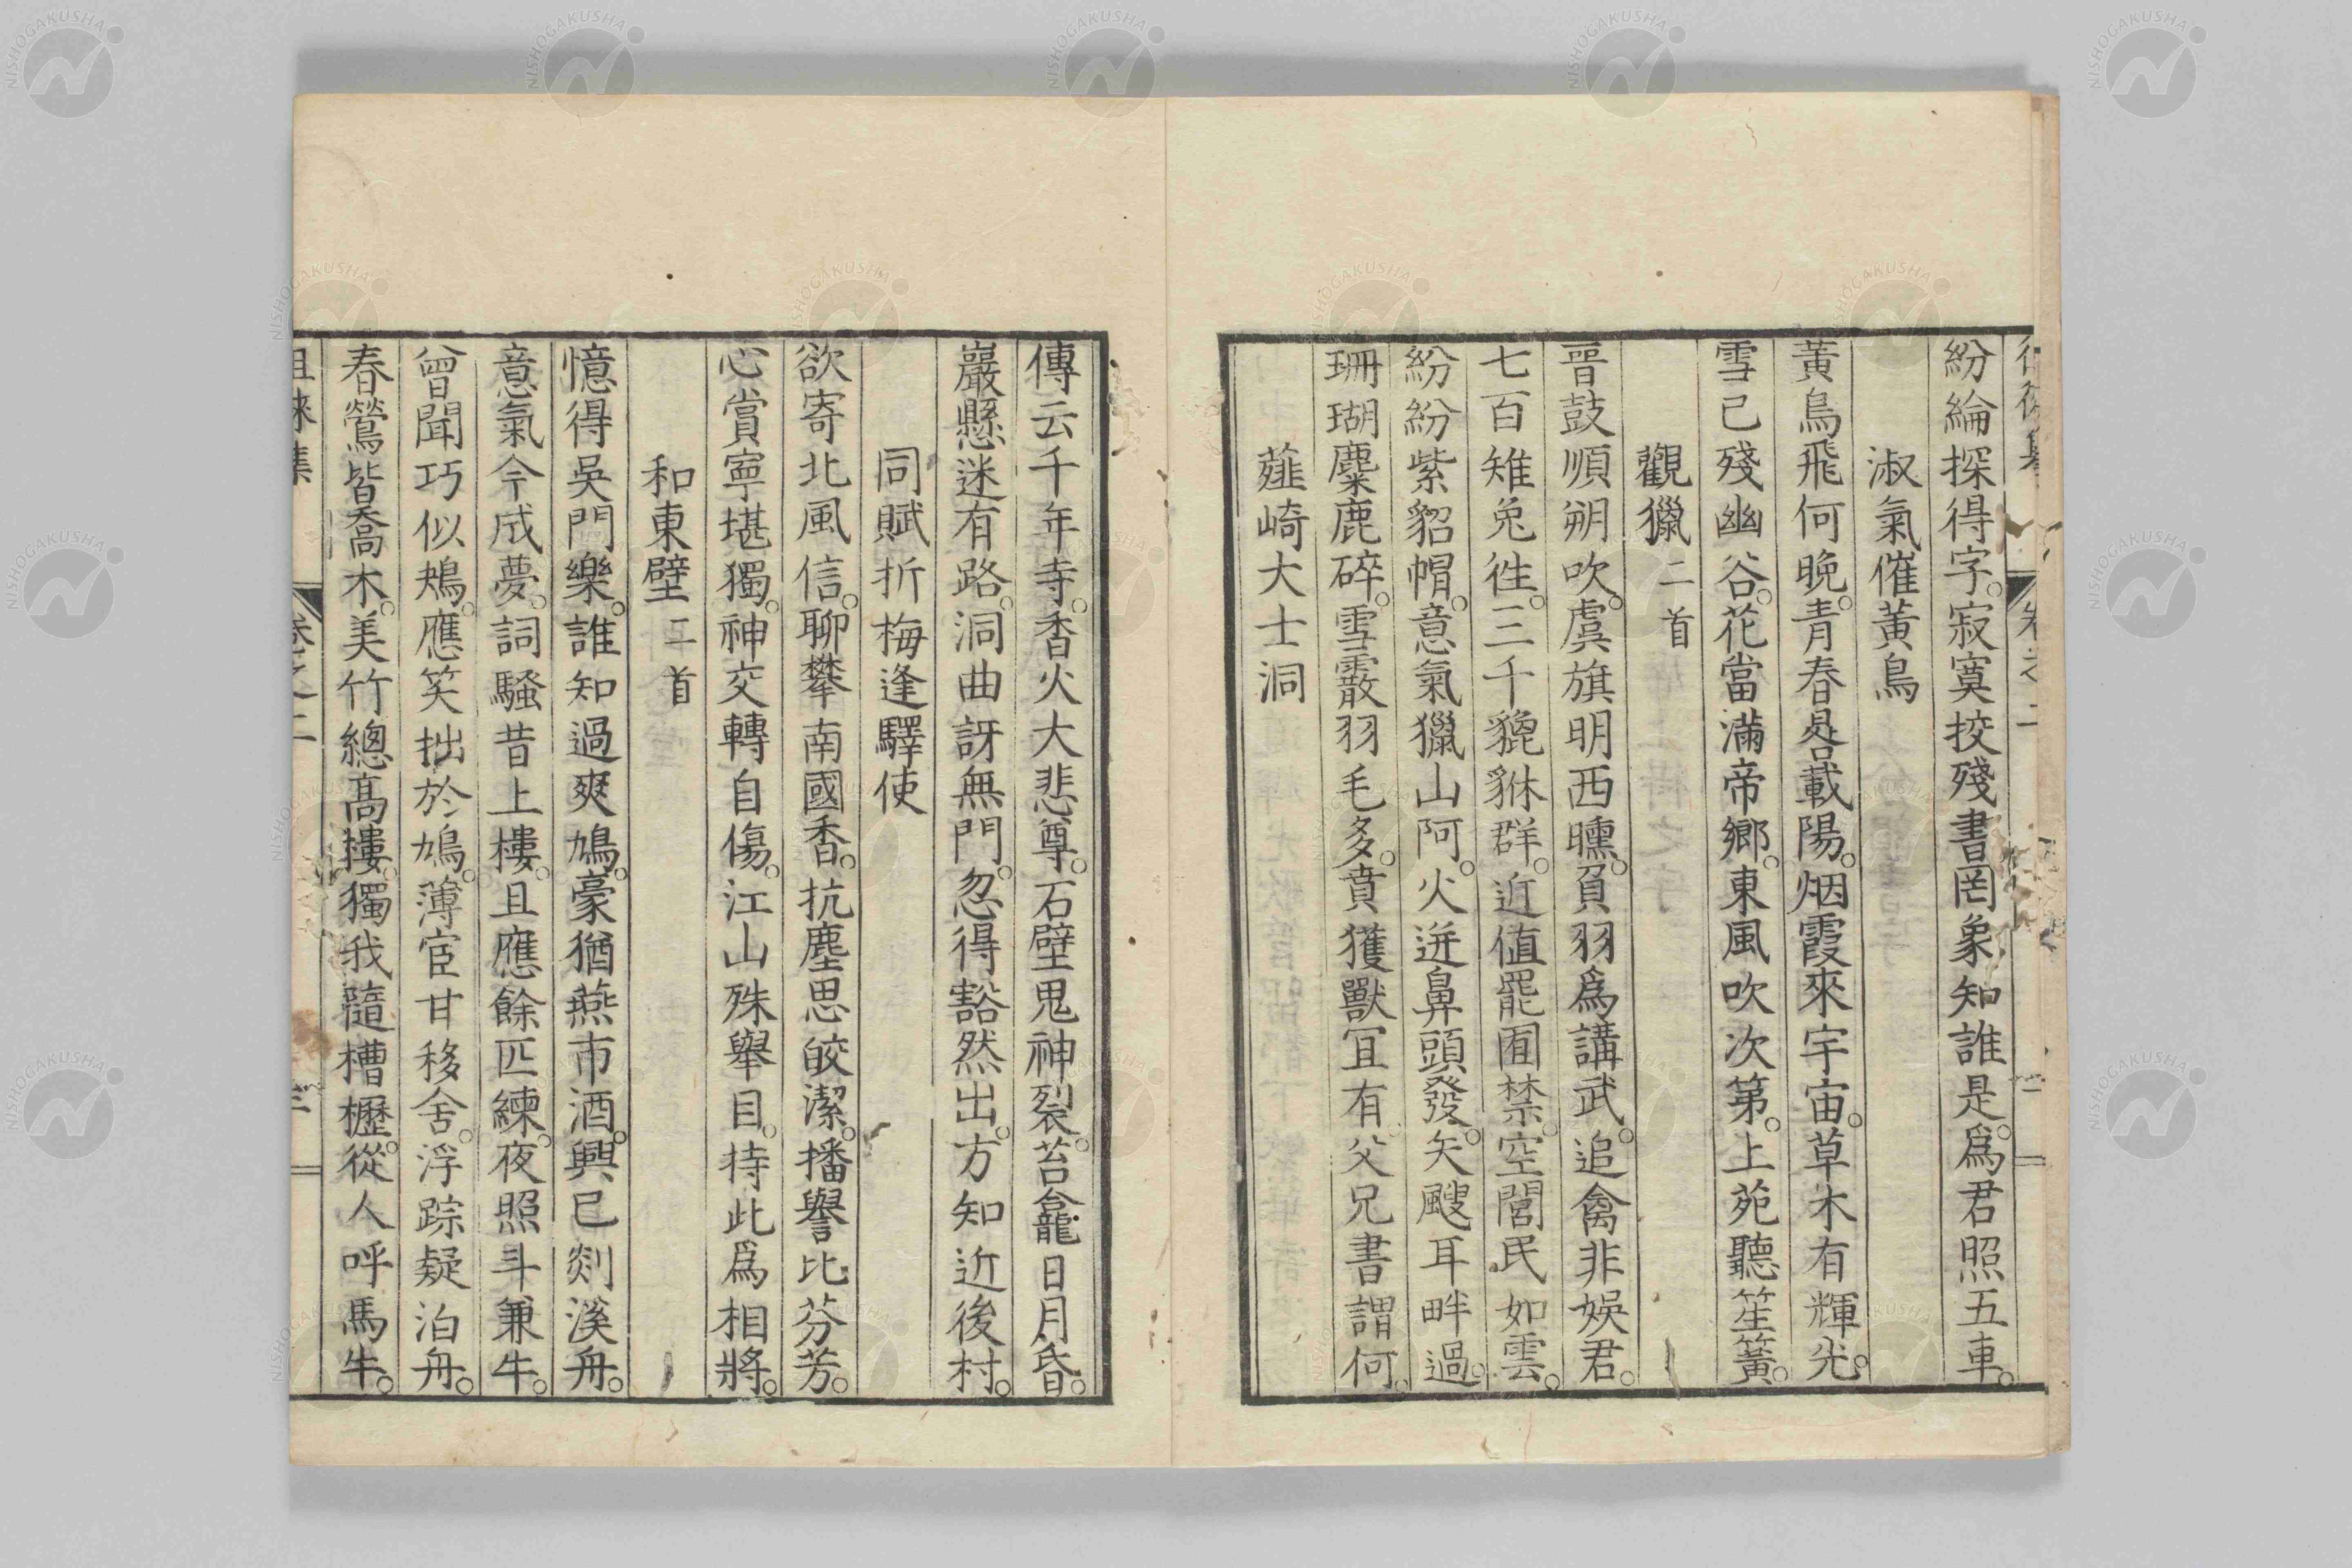 紛綸探得字。寂寞挍殘書罔象知誰是。爲君照五車。
淑氣催黃鳥
黃鳥飛何晚。青春是載陽。烟霞來宇宙。草木有輝光。
雪已殘幽谷。花當滿帝鄉。東風吹次第。上苑聽笙簧。
觀獵 二首
晉鼓順朔吹。虞旗明西曛。負羽爲講武。追禽非娛君。
七百雉兔徃。三千貔貅群。近値罷囿禁。空閭民如雲。
紛紛紫貂帽。意氣獵山阿。火迸鼻頭發。矢颼耳畔過。
珊瑚麋鹿碎。雪霰羽毛多。賁獲獸冝有。父兄書謂何。
薤崎大士洞
傳云千年寺。香火大悲尊。石壁鬼神裂。苔龕日月昏。
巖懸迷有路。洞曲訝無門。忽得豁然出。方知近後村。
同賦折梅逢驛使
欲寄北風信。聊攀南國香。抗塵思皎潔。播譽比芬芳。
心賞寧堪獨。神交轉自傷。江山殊舉目。持此爲相將。
和東壁 二首
憶得吳門樂。誰知過爽鳩。豪猶燕市酒。興已剡溪舟。
意氣今成夢。詞騷昔上樓。且應餘匹練。夜照斗兼牛。
曾聞巧似鳺。應笑拙於鳩。薄宦甘移舍。浮踪疑泊舟。
春鶯皆喬木。美竹總高樓。獨我隨槽櫪。從人呼馬牛。
徂徠集 卷之二 三